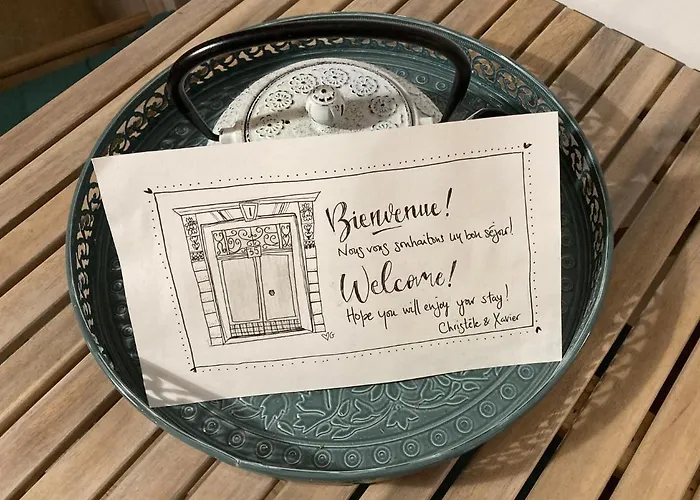 53
Bienvenue!
Nous vous souhaitons un bon séjour!
Welcome!
Hope you will enjoy your stay!
Christèle & Xavier
G